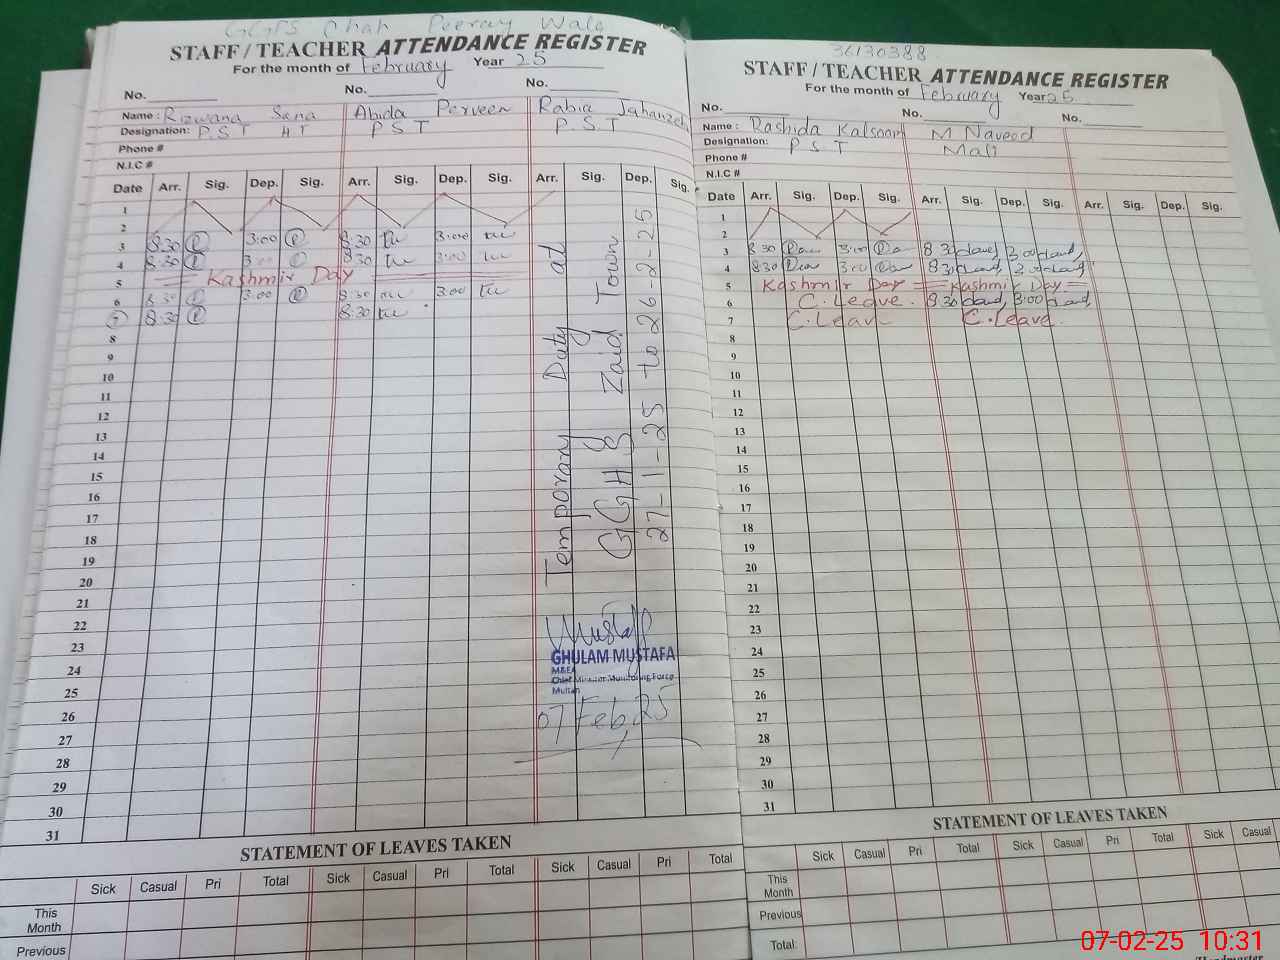 GGPS Chah Peeray Wala
STAFF/TEACHER ATTENDANCE REGISTER
For the month of February Year 25
No. No. No.
Name: Rizwana Sana Abida Perveen Rabia Jahanzeb
Designation: P.S.T HT P S T P.S.T
Phone #
N.I.C #
Date Arr. Sig. Dep. Sig. Arr. Sig. Dep. Sig. Arr. Sig. Dep. Sig.
1
2
3 8:30 3:00 8:30 3:00
4 8:30 3:00 8:30 3:00
5 = Kashmir Day
6 8:30 3:00 8:30 3:00
7 8:30 8:30
8
9
10
11
12
13
14
15
16
17
18
19
20
21
22
23
24
25
26
27
28
29
30
31
Temporary Duty at
GGHS Zaid Town
27-1-25 to 26-2-25
Mustafa
GHULAM MUSTAFA
M&EA
Chief Minister Monitoring Force
Multan
07 Feb, 25
STATEMENT OF LEAVES TAKEN
Sick Casual Pri Total Sick Casual Pri Total Sick Casual Pri Total
This Month
Previous
36130388
STAFF/TEACHER ATTENDANCE REGISTER
For the month of February Year 25
No. No. No.
Name: Rashida Kalsoom M Naveed
Designation: P S T Mali
Phone #
N.I.C #
Date Arr. Sig. Dep. Sig. Arr. Sig. Dep. Sig. Arr. Sig. Dep. Sig.
1
2
3 8:30 3:00 8:30 3:00
4 8:30 3:00 8:30 3:00
5 Kashmir Day = Kashmir Day =
6 C.Leave. 8:30 3:00
7 C.Leave C.Leave.
8
9
10
11
12
13
14
15
16
17
18
19
20
21
22
23
24
25
26
27
28
29
30
31
STATEMENT OF LEAVES TAKEN
Sick Casual Pri Total Sick Casual Pri Total Sick Casual
This Month
Previous
Total:
Headmaster
07-02-25 10:31